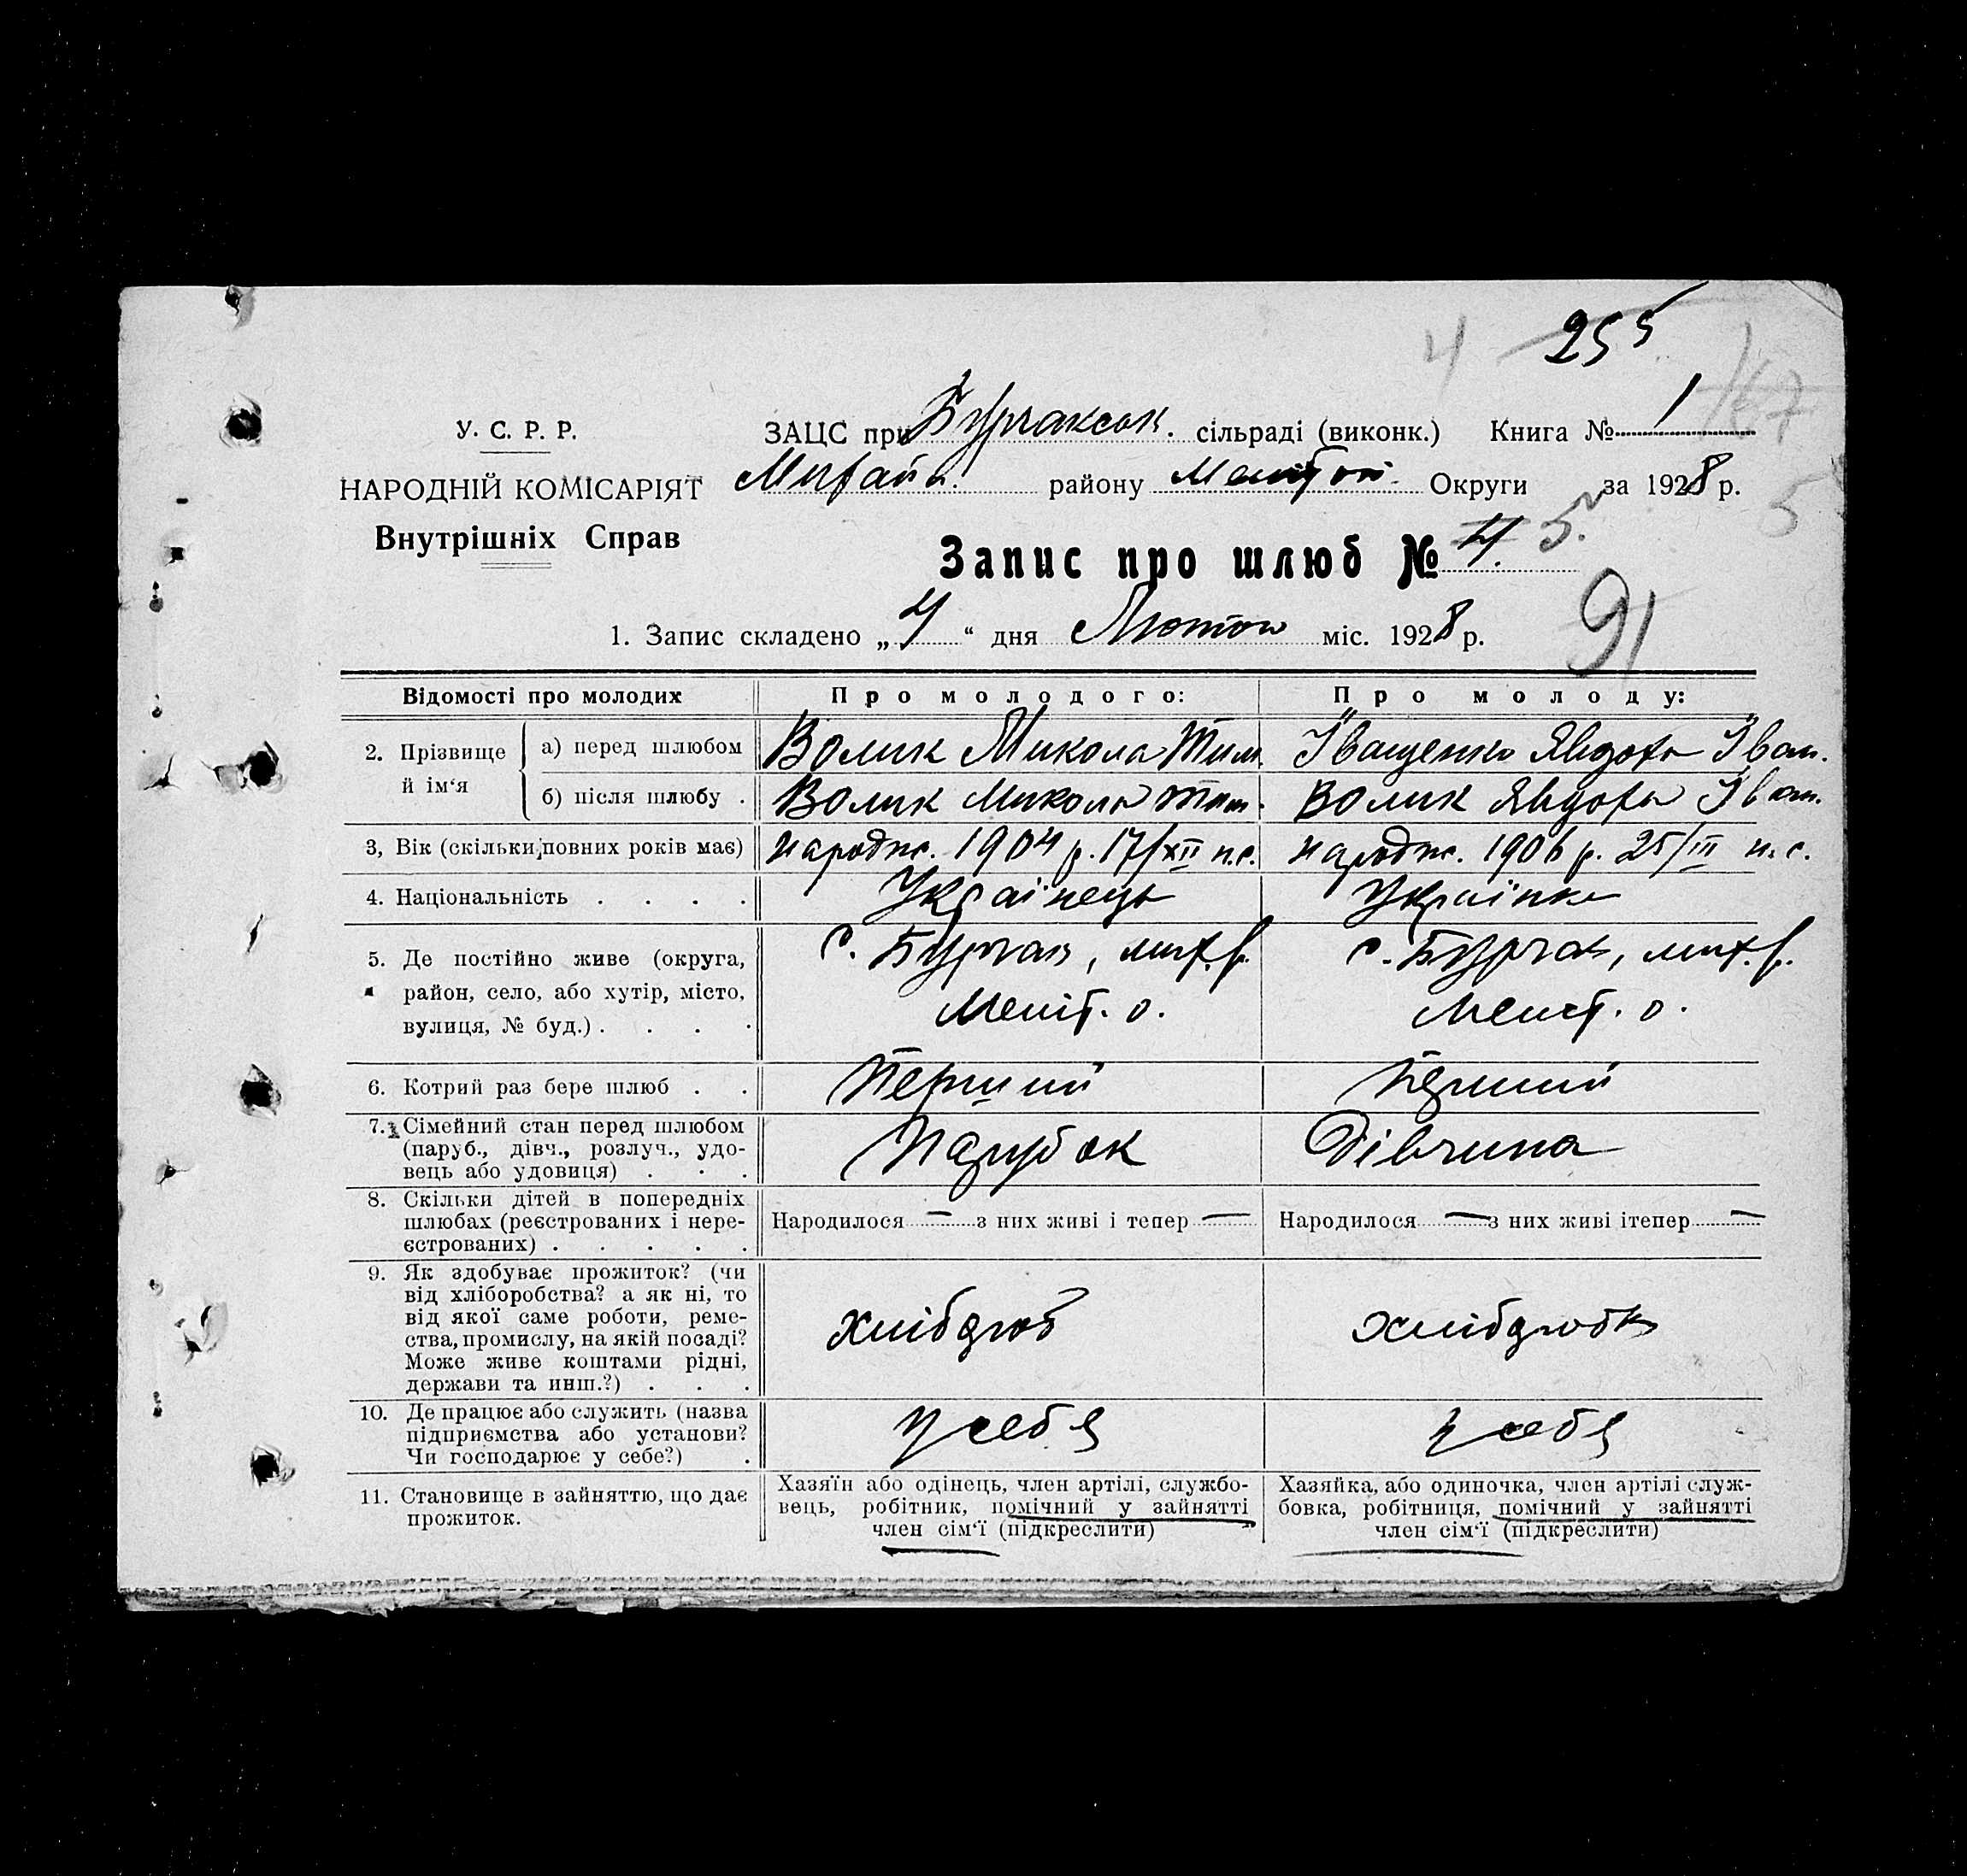 4 255
У. С. Р. Р.
ЗАЦС при Бурчакськ. сільраді (виконк.) Книга № 1 167
НАРОДНІЙ КОМІСАРІЯТ
Михайл. району Меліт. Округи за 1928 р.
5
Внутрішніх Справ
Запис про шлюб № 4. 5.
1. Запис складено „4“ дня Лютого міс. 1928 р.
91
Відомості про молодих Про молодого: Про молоду:
2. Прізвище й ім‘я
а) перед шлюбом Волик Микола Тим. Іващенко Явдоха Іван.
б) після шлюбу . Волик Микола Тим. Волик Явдоха Іван.
3, Вік (скільки повних років має) народж. 1904 р. 17/XII н.с. народж. 1906 р. 25/III н.с.
4. Національність . . . . Українець Українка
5. Де постійно живе (округа, с. Бурчак, мих. р. с. Бурчак, мих. р.
район, село, або хутір, місто, Меліт. о. Меліт. о.
вулиця, № буд.) . . . .
6. Котрий раз бере шлюб . . Перший Перший
7. Сімейний стан перед шлюбом
(паруб., дівч., розлуч., удо- Парубок Дівчина
вець або удовиця) . . .
8. Скільки дітей в попередніх
шлюбах (реєстрованих і нере- Народилося — з них живі і тепер — Народилося — з них живі ітепер —
єстрованих) . . . . .
9. Як здобуває прожиток? (чи
від хліборобства? а як ні, то
від якої саме роботи, реме- хлібороб хліборобка
ства, промислу, на якій посаді?
Може живе коштами рідні,
держави та инш.?) . . .
10. Де працює або служить (назва
підприємства або установи? у себя у себя
Чи господарює у себе?) .
11. Становище в зайняттю, що дає
прожиток.
Хазяїн або одінець, член артілі, службо-
вець, робітник, помічний у зайнятті
член сім‘ї (підкреслити)
Хазяйка, або одиночка, член артілі служ-
бовка, робітниця, помічний у зайнятті
член сім‘ї (підкреслити)